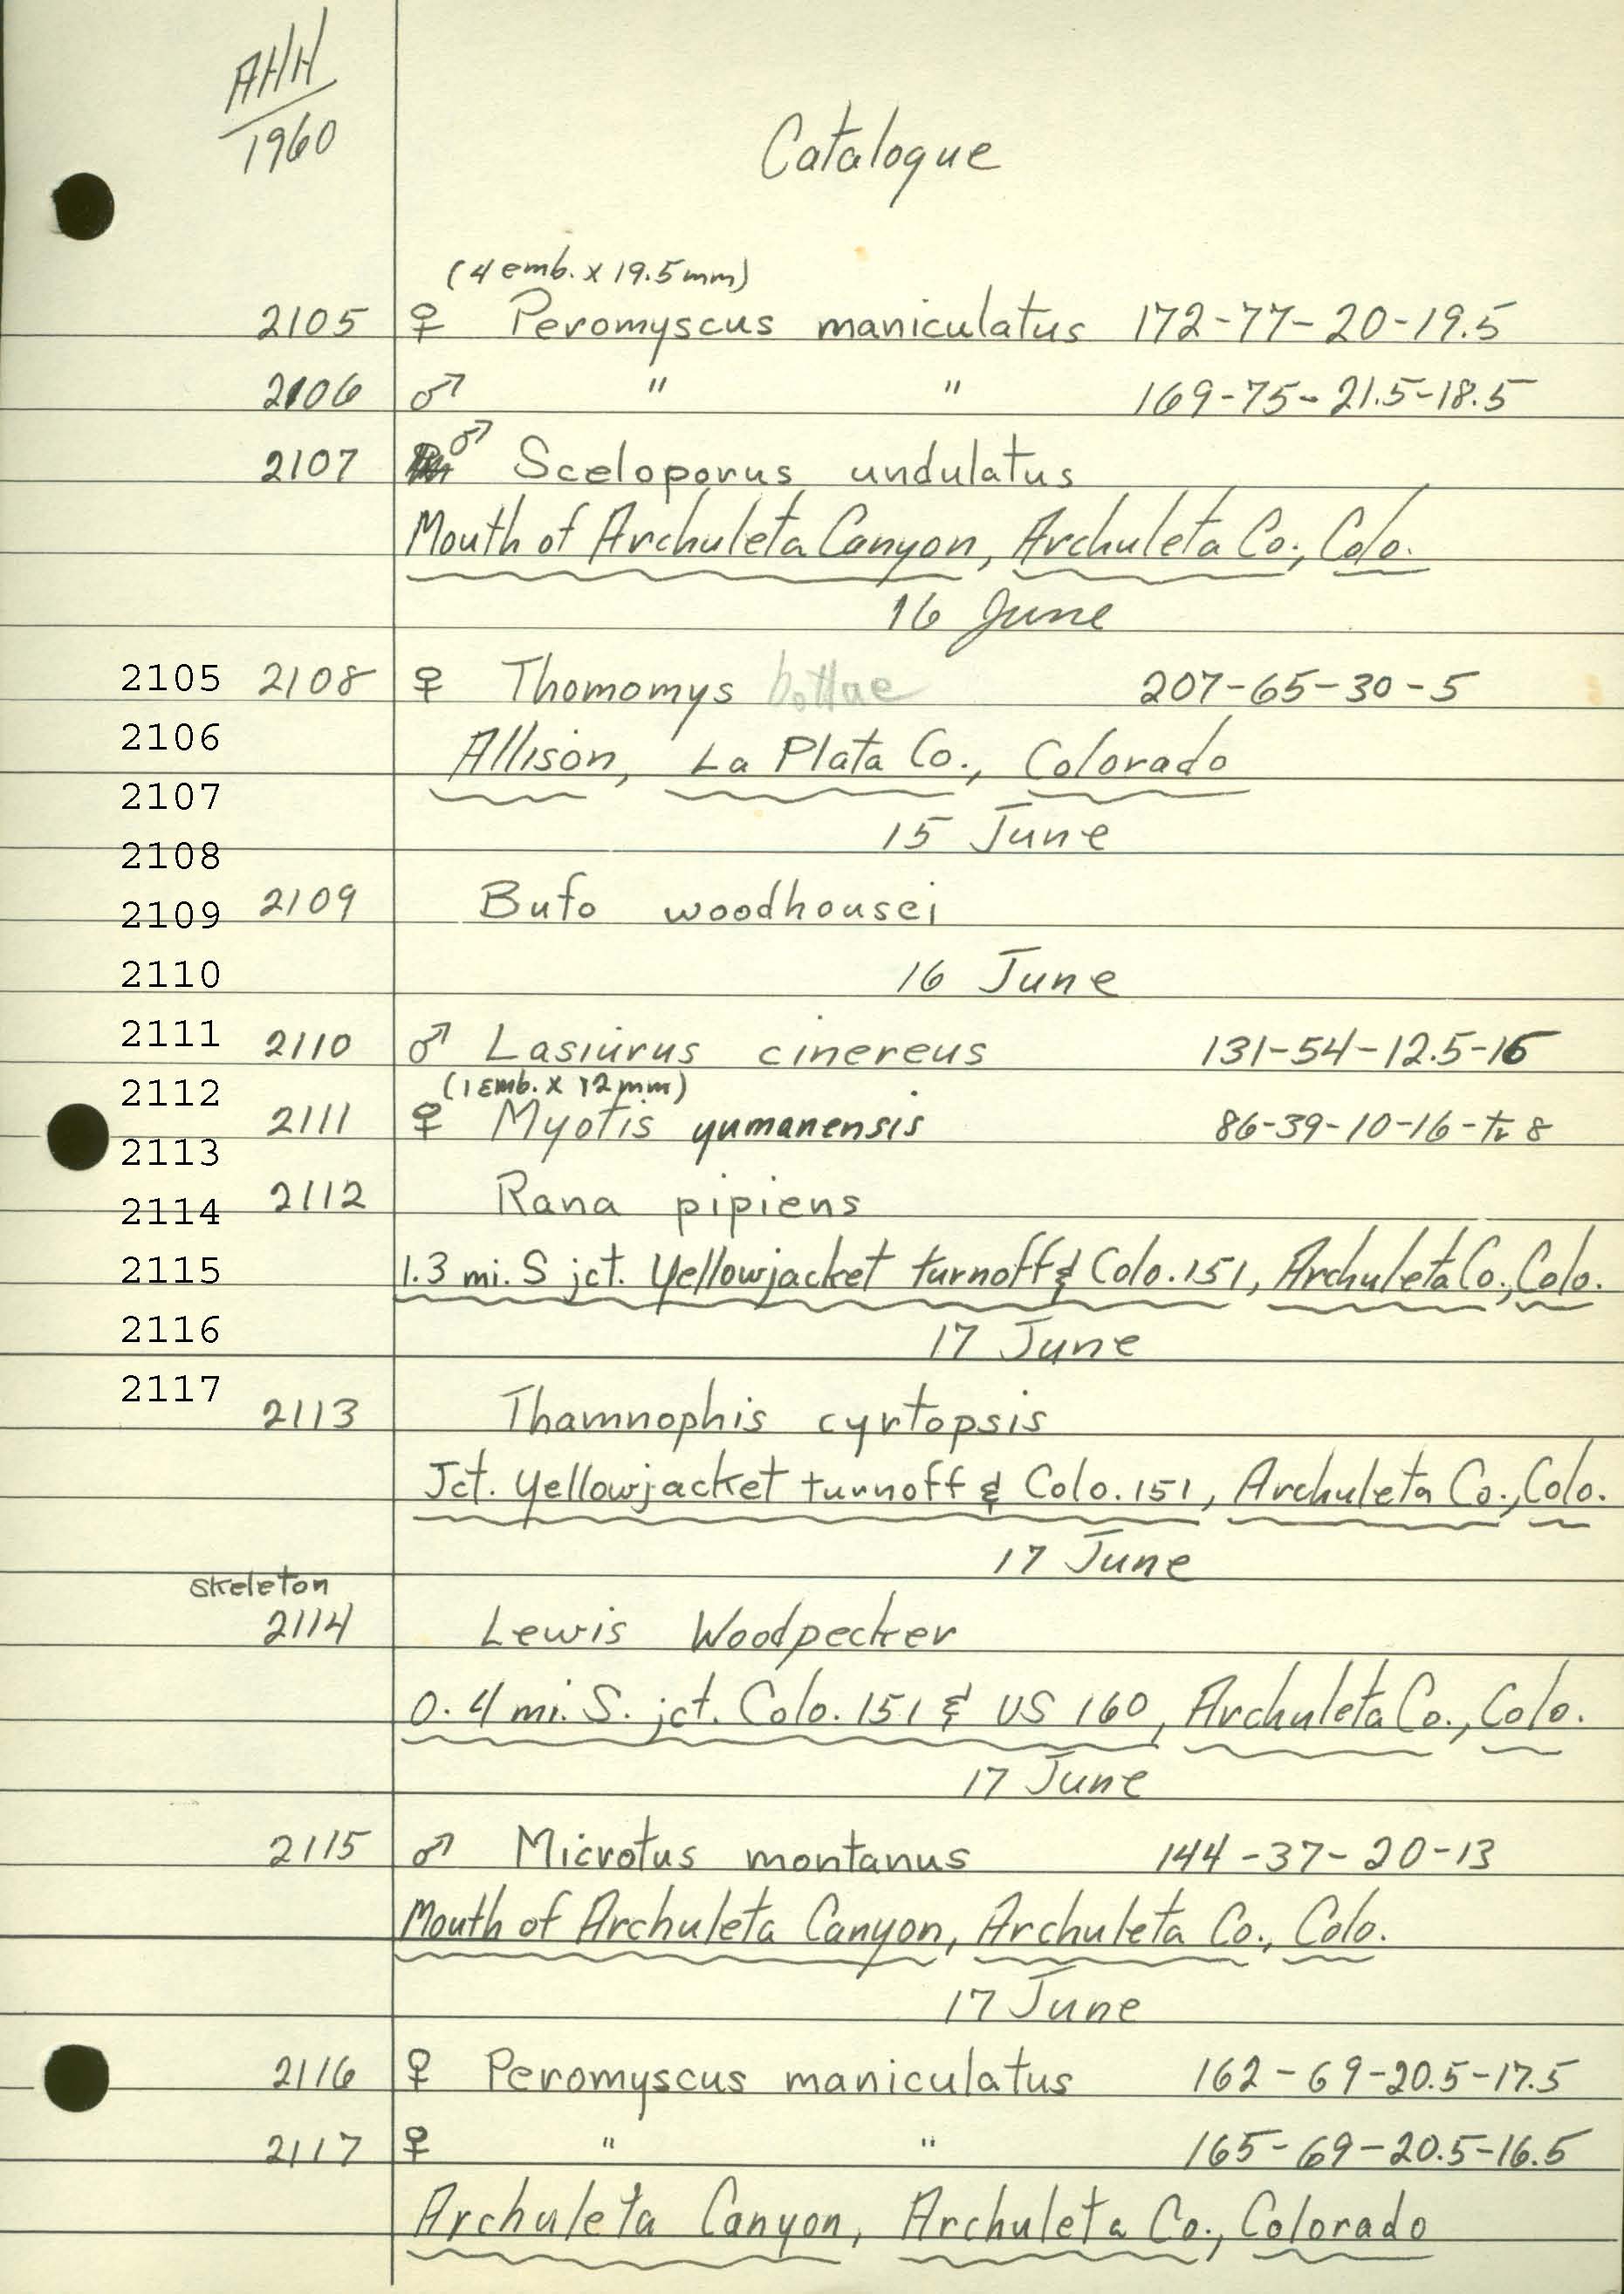 AHH
1960
Catalogue
(4 emb. x 19.5 mm)
2105 ♀ Peromyscus maniculatus 172-77-20-19.5
2106 ♂ " " 169-75-21.5-18.5
2107 ♂ Sceloporus undulatus
Mouth of Archuleta Canyon, Archuleta Co., Colo.
16 June
2105 2108 ♀ Thomomys bottae 207-65-30-5
2106 Allison, La Plata Co., Colorado
2107
15 June
2108
2109 2109 Bufo woodhousei
2110 16 June
2111 2110 ♂ Lasiurus cinereus 131-54-12.5-16
2112 (1 emb. x 12 mm)
2111 ♀ Myotis yumanensis 86-39-10-16-tr 8
2113
2114 2112 Rana pipiens
2115 1.3 mi. S jct. Yellowjacket turnoff & Colo. 151, Archuleta Co., Colo.
2116 17 June
2117
2113 Thamnophis cyrtopsis
Jct. Yellowjacket turnoff & Colo. 151, Archuleta Co., Colo.
17 June
skeleton
2114 Lewis Woodpecker
0.4 mi. S. jct. Colo. 151 & US 160, Archuleta Co., Colo.
17 June
2115 ♂ Microtus montanus 144-37-20-13
Mouth of Archuleta Canyon, Archuleta Co., Colo.
17 June
2116 ♀ Peromyscus maniculatus 162-69-20.5-17.5
2117 ♀ " " 165-69-20.5-16.5
Archuleta Canyon, Archuleta Co., Colorado